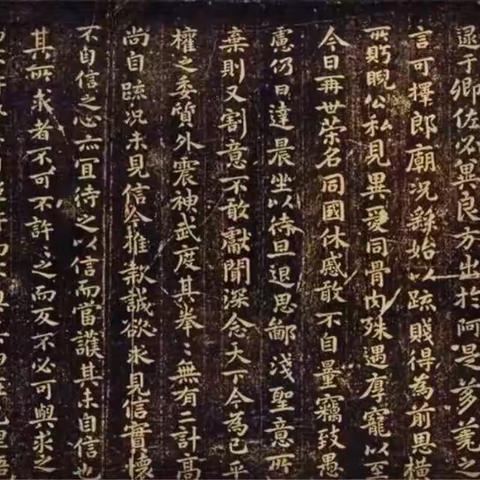 逮于卿佐必冀良方出於阿是芻蕘之
言可擇郎廟況繇始以疏賤得為前恩橫
所眄睨公私見異愛同骨肉殊遇厚寵以至
今日再世榮名同國休慼敢不自量竊致愚
慮仍日達晨坐以待旦退思鄙淺聖意所
棄則又割意不敢獻聞深念天下今為已平
權之委質外震神武度其拳〻無有二計高
尚自疏況未見信今推款誠欲求見信實懷
不自信之心亦宜待之以信而當護其未自信也
其所求者不可不許〻之而反不必可與求之